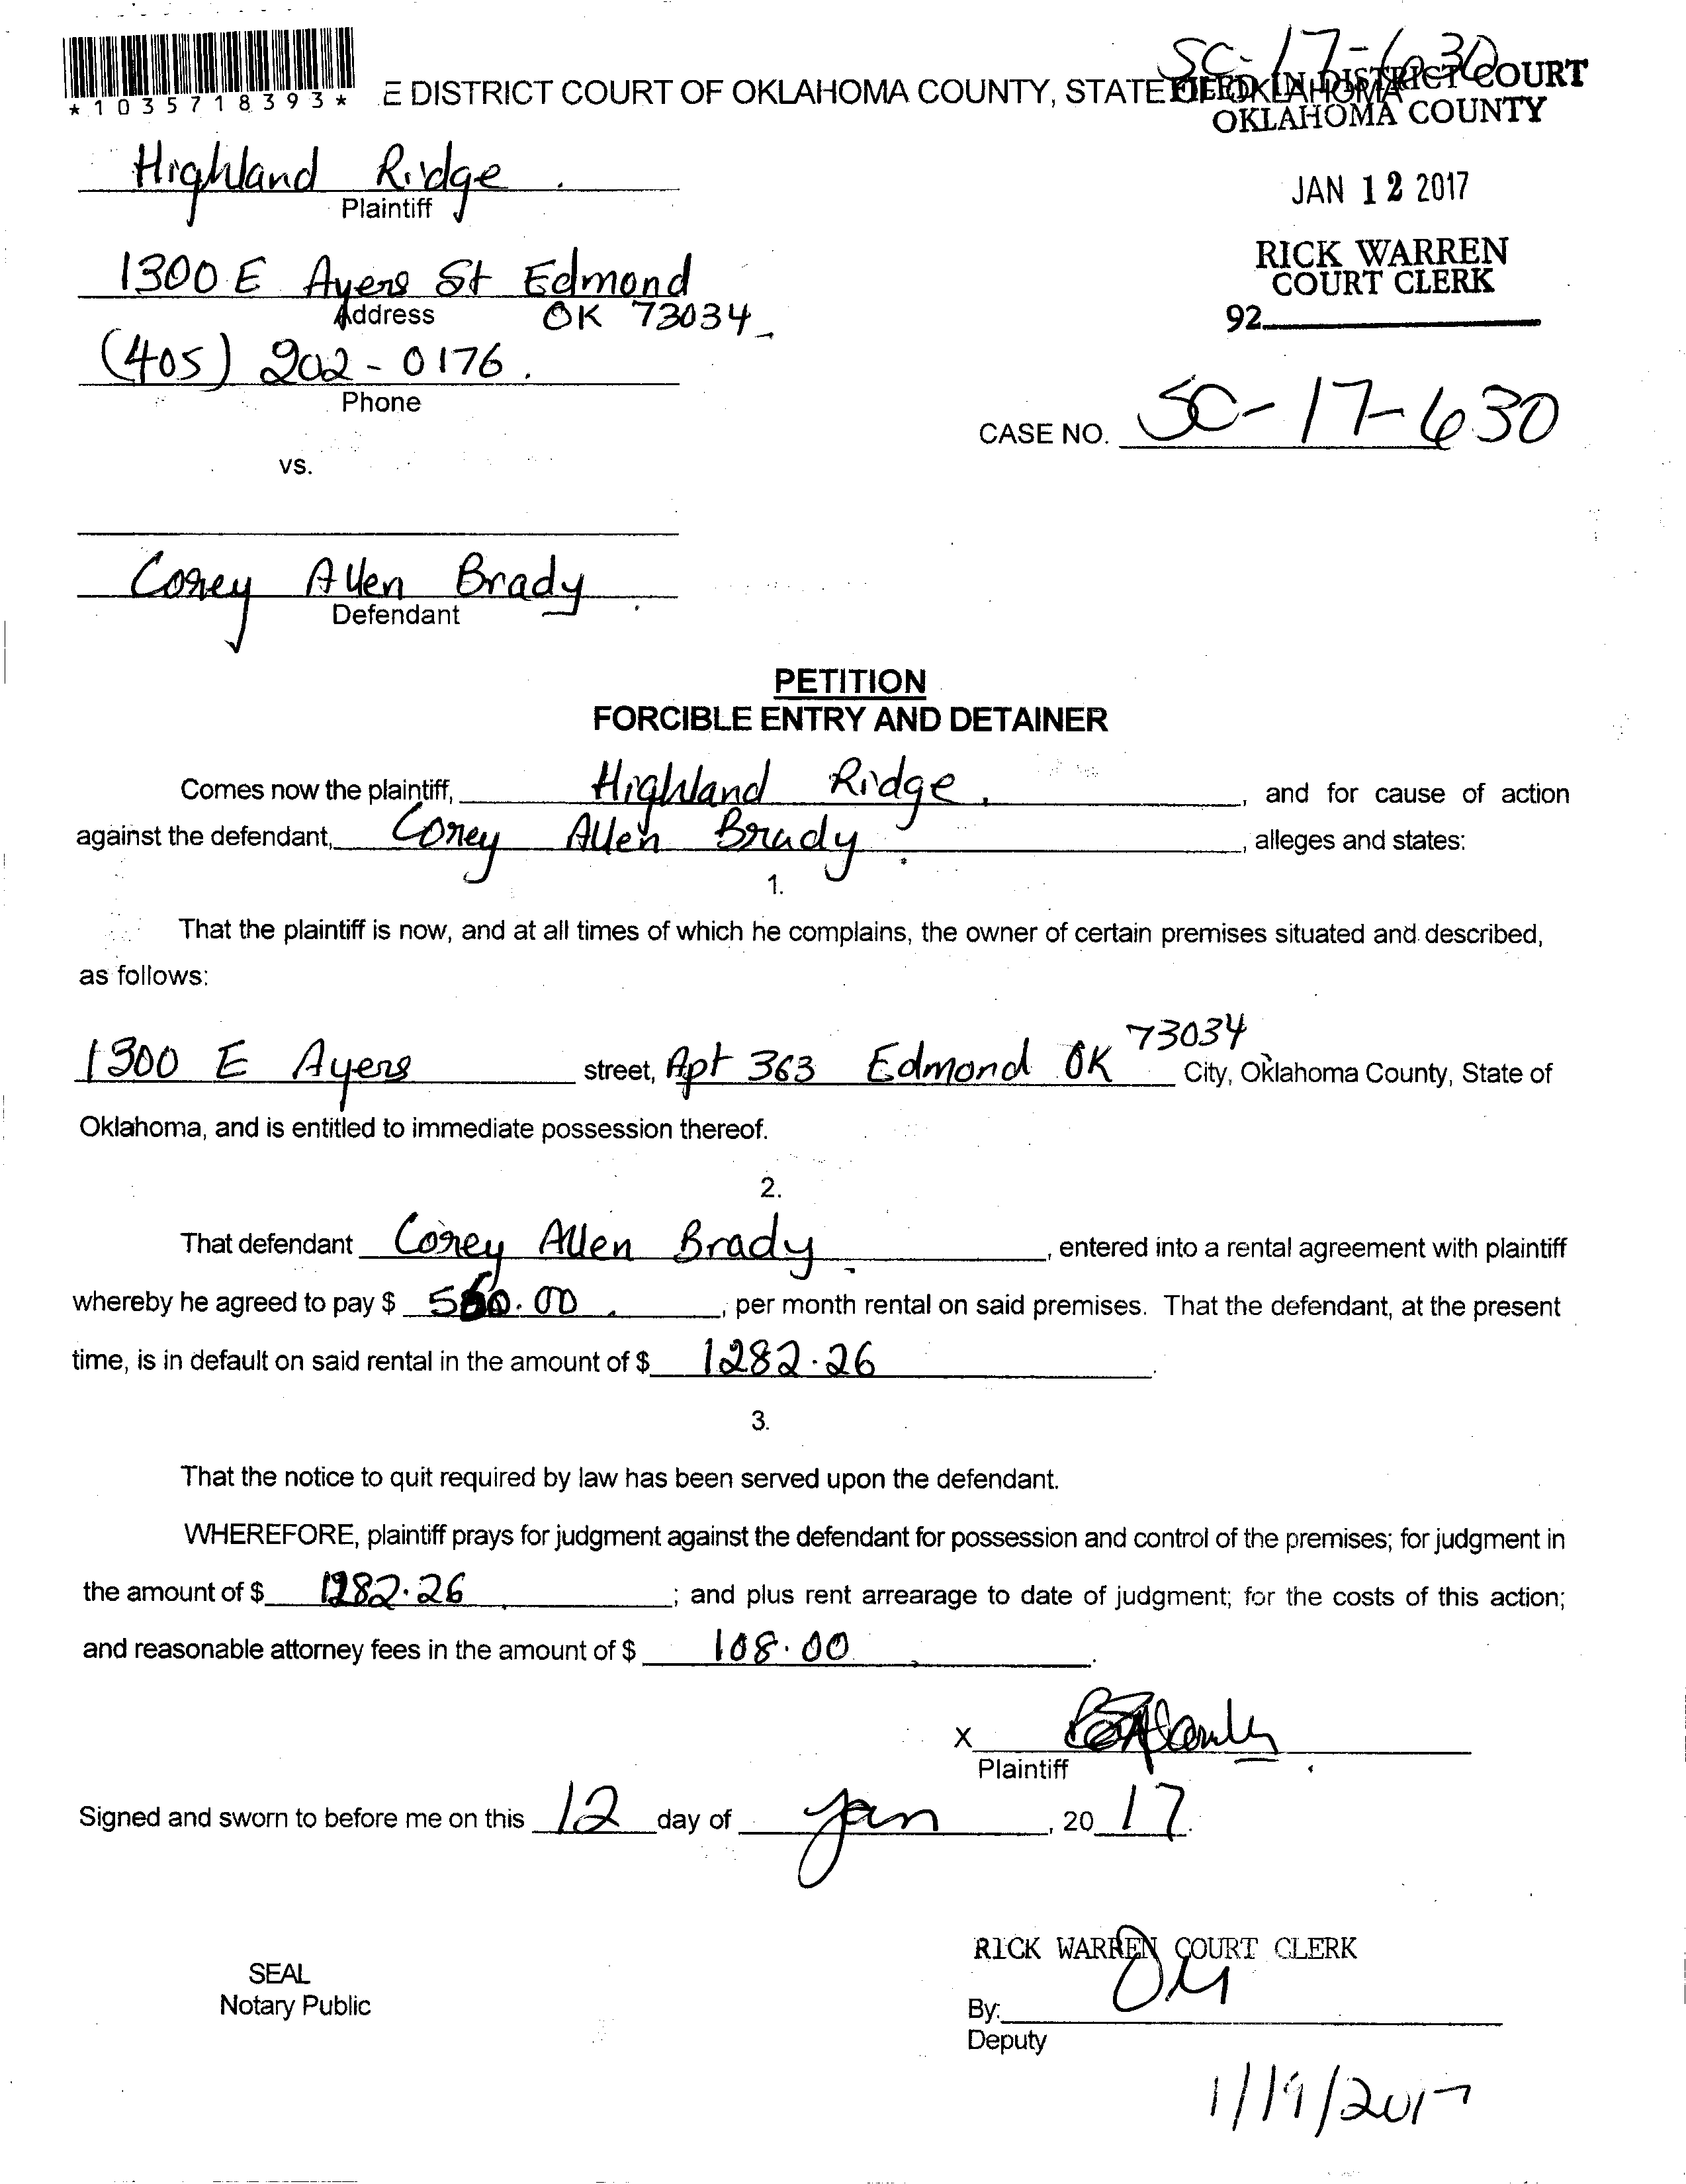 SC-17-630
*1035718393*
E DISTRICT COURT OF OKLAHOMA COUNTY, STATE OF OKLAHOMA
FILED IN DISTRICT COURT
OKLAHOMA COUNTY
Highland Ridge.
Plaintiff
JAN 12 2017
RICK WARREN
COURT CLERK
92
1300 E Ayers St Edmond
Address OK 73034
(405) 202-0176.
Phone
CASE NO. SC-17-630
vs.
Corey Allen Brady.
Defendant
PETITION
FORCIBLE ENTRY AND DETAINER
Comes now the plaintiff, Highland Ridge., and for cause of action
against the defendant, Corey Allen Brady., alleges and states:
1.
That the plaintiff is now, and at all times of which he complains, the owner of certain premises situated and described,
as follows:
1300 E Ayers street, Apt 363 Edmond OK 73034 City, Oklahoma County, State of
Oklahoma, and is entitled to immediate possession thereof.
2.
That defendant Corey Allen Brady., entered into a rental agreement with plaintiff
whereby he agreed to pay $ 560.00., per month rental on said premises. That the defendant, at the present
time, is in default on said rental in the amount of $ 1282.26.
3.
That the notice to quit required by law has been served upon the defendant.
WHEREFORE, plaintiff prays for judgment against the defendant for possession and control of the premises; for judgment in
the amount of $ 1282.26.; and plus rent arrearage to date of judgment; for the costs of this action;
and reasonable attorney fees in the amount of $ 108.00.
X
Plaintiff
Signed and sworn to before me on this 12 day of Jan, 20 17.
RICK WARREN COURT CLERK
SEAL
Notary Public
By:
Deputy
1/19/2017